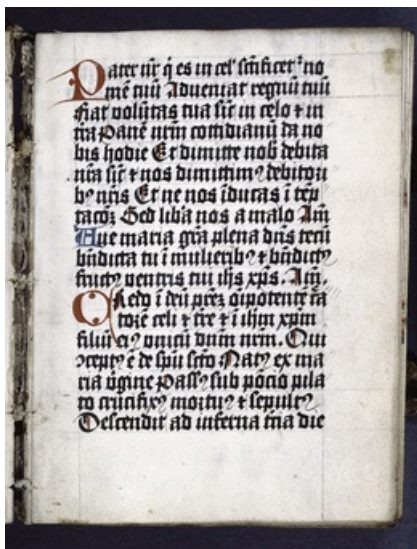 Pater nr̄ q̄ es in cel' sc̄ificet᷑ no
mē tuū Adueniat regnū tuū
fiat volūtas tua sic̄ in celo ⁊ in
t̄ra Panē nr̄m cotidianū da no
bis hodie Et dimitte nob̄ debita
nr̄a sic̄ ⁊ nos dimittim⁹ debitori
b⁹ nr̄is Et ne nos īducas ī tēp
tacōꝫ Sed lib̄a nos a malo Am̄
Aue maria gr̄a plena dn̄s tecū
bn̄dicta tu ī mulierib⁹ ⁊ bn̄dict⁹
fruct⁹ ventris tui ih̄s xp̄s. Am̄.
Credo ī deū prēꝫ oīpotentē c̄a
torē celi ⁊ t̄re ⁊ ī ih̄m xp̄m
filiū ei⁹ vnicū dn̄m nr̄m. Qui
ꝯcept⁹ ē de sp̄u sc̄to Nat⁹ ex ma
ria v̄gine Pass⁹ sub pōcio pila
to crucifix⁹ mortu⁹ ⁊ sepult⁹
Descendit ad inferna t̄cia die